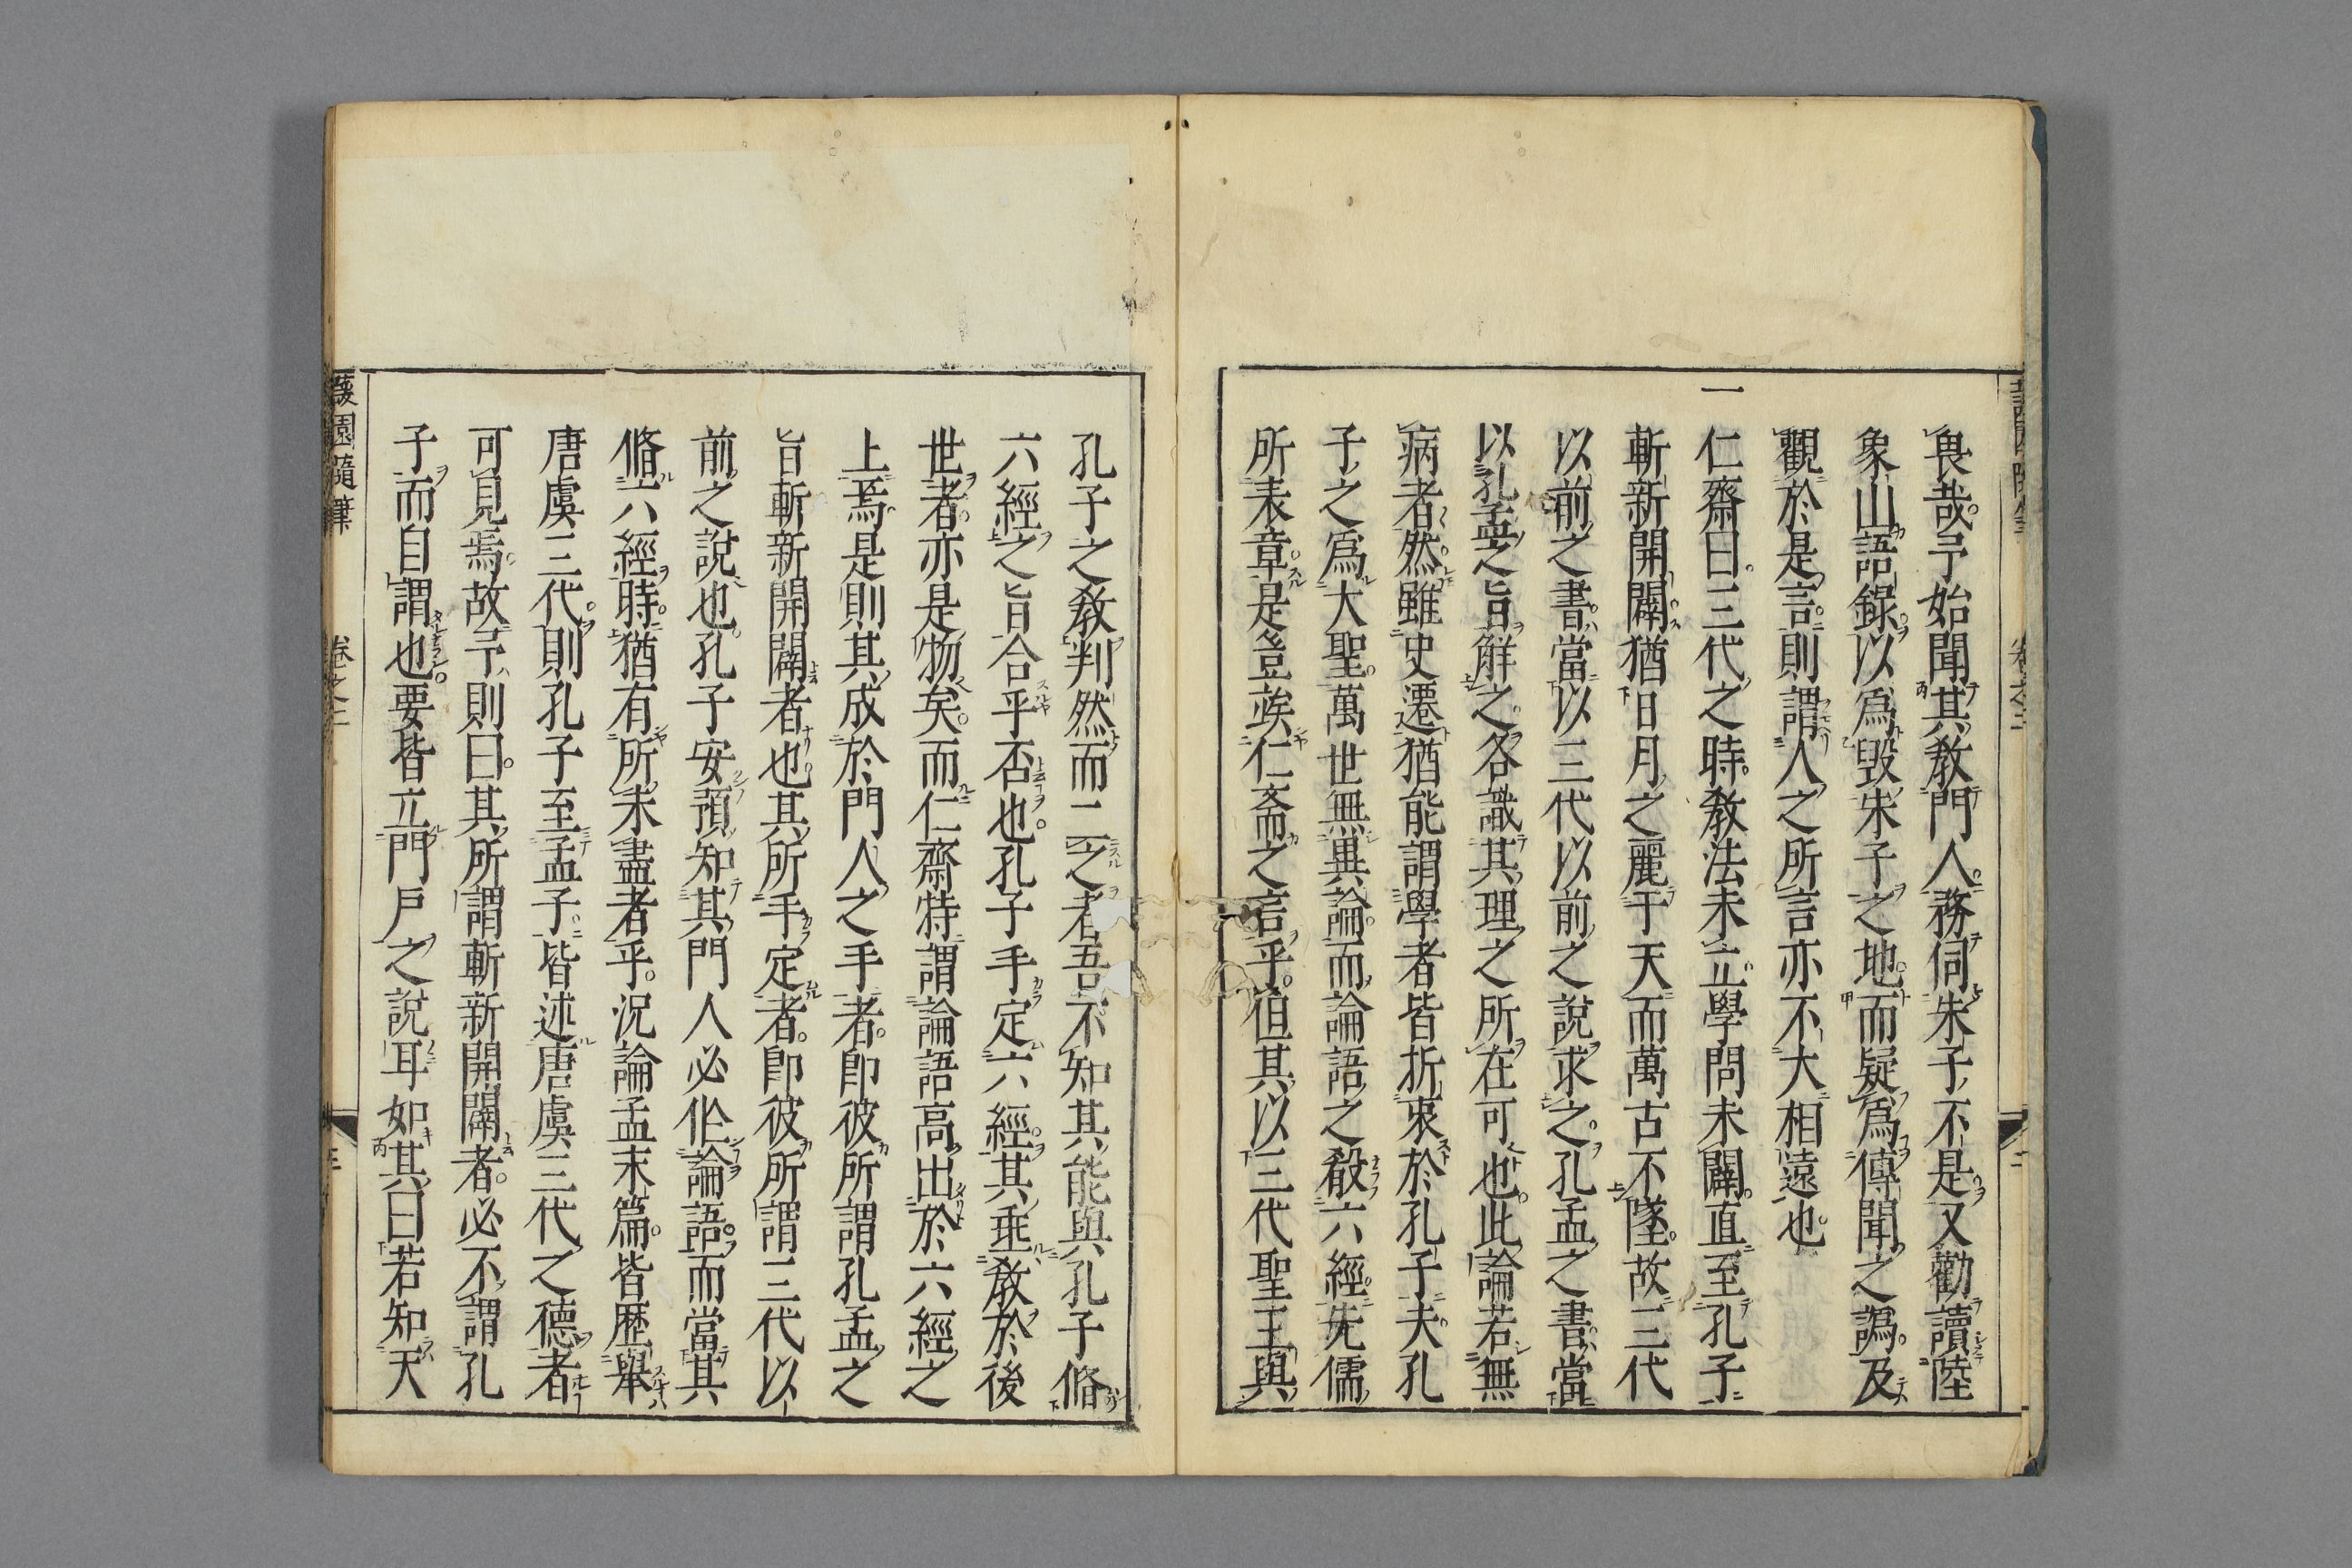 畏哉。予始聞其教門人。務伺朱子不是。又勸讀陸
象山語錄。以爲毀朱子之地。而疑爲傳聞之譌。及
觀於是言。則謂人之所言亦不大相遠也。
一
仁齋曰。三代之時。教法未立。學問未闢。直至孔子
斬新開闢。猶日月之麗于天。而萬古不墜。故三代
以前之書。當以三代以前之說求之。孔孟之書。當
以孔孟之旨解之。各識其理之所在可也。此論若無
病者。然雖史遷猶能謂學者皆折衷於孔子。夫孔
子之爲大聖。萬世無異論。而論語之殽六經。先儒
所表章。是豈竢仁斎之言乎。徂其以三代聖王與
孔子之教判然而二之者。吾不知其能與孔子脩
六經之旨合乎否也。孔子手定六經。其垂教於後
世者。亦是物矣。而仁齋特謂論語高出於六經之
上焉。是則其成於門人之手者。卽彼所謂孔孟之
旨斬新開闢者也。其所手定者。卽彼所謂三代以
前之說也。孔子安預知其門人必作論語。而當其
脩六經時。猶有所未盡者乎。況論孟末篇。皆歷擧
唐虞三代。則孔子至孟子。皆述唐虞三代之德者
可見焉。故予則曰。其所謂斬新開闢者。必不謂孔
子而自謂也。要皆立門戶之說耳。如其曰若知天
蘐園隨筆
卷之二
三